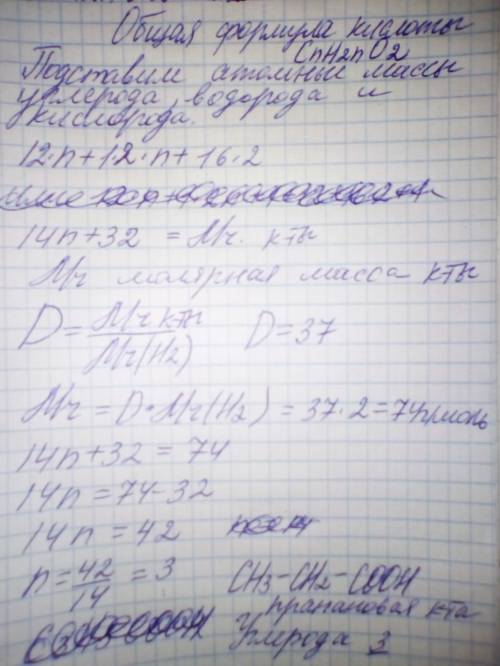 Общая формула кислоты
CnH2nO2
Подставим атомные массы
углерода, водорода и
кислорода.
12·n+1·2·n+16·2
14n+32 = Mr. кты
Mr молярная масса кты
D = Mr кты / Mr(H2) D=37
Mr = D·Mr(H2) = 37·2=74г/моль
14n+32=74
14n=74-32
14n=42
n=42/14=3 CH3-CH2-COOH
пропановая кта
Углерода 3